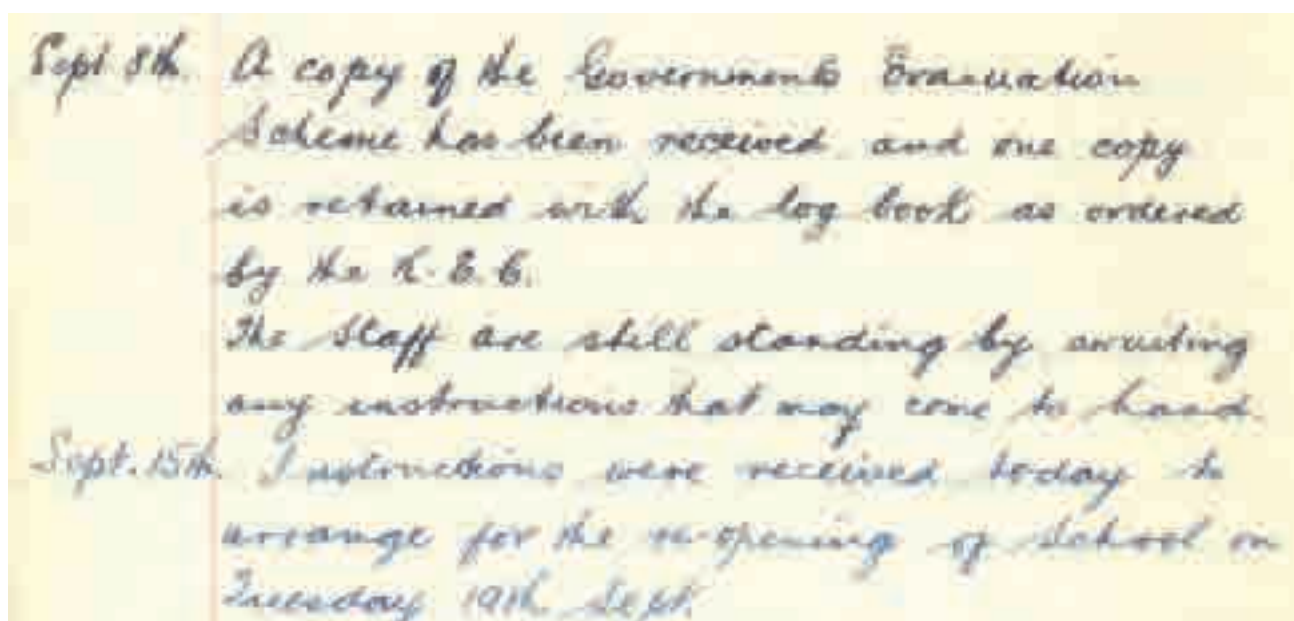 Sept 8th. A copy of the Governments Evacuation
Scheme has been received, and one copy
is retained with the log book as ordered
by the K.E.C.
The Staff are still standing by awaiting
any instructions that may come to hand.
Sept. 15th. Instructions were received today to
arrange for the re-opening of School on
Tuesday 19th Sept.